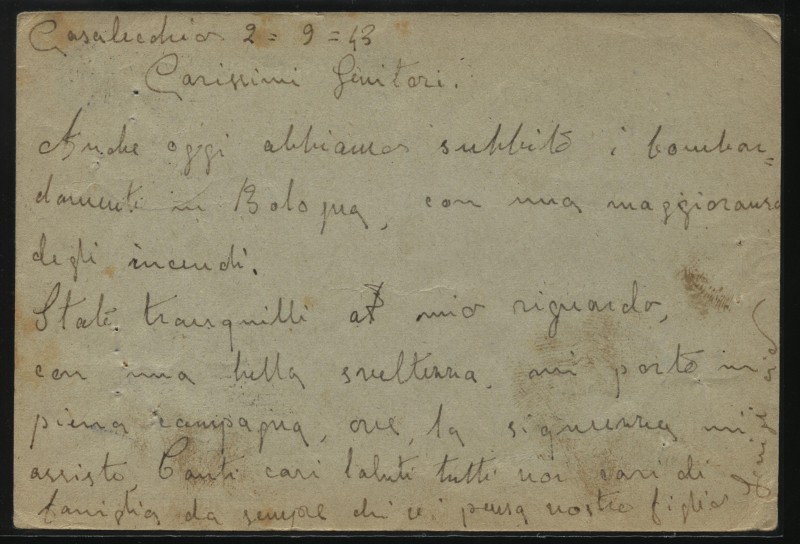 Casalecchio 2 = 9 = 43
Carissimi Genitori.
Anche oggi abbiamo subbito i bombar=
damenti in Bologna, con una maggioranza
degli incendi.
State tranquilli al mio riguardo,
con una bella sveltezza, mi porto in
piena campagna, ove, la sicurezza mi
assisto, Tanti cari saluti tutti voi cari di
famiglia da sempre chi vi pensa vostro figlio